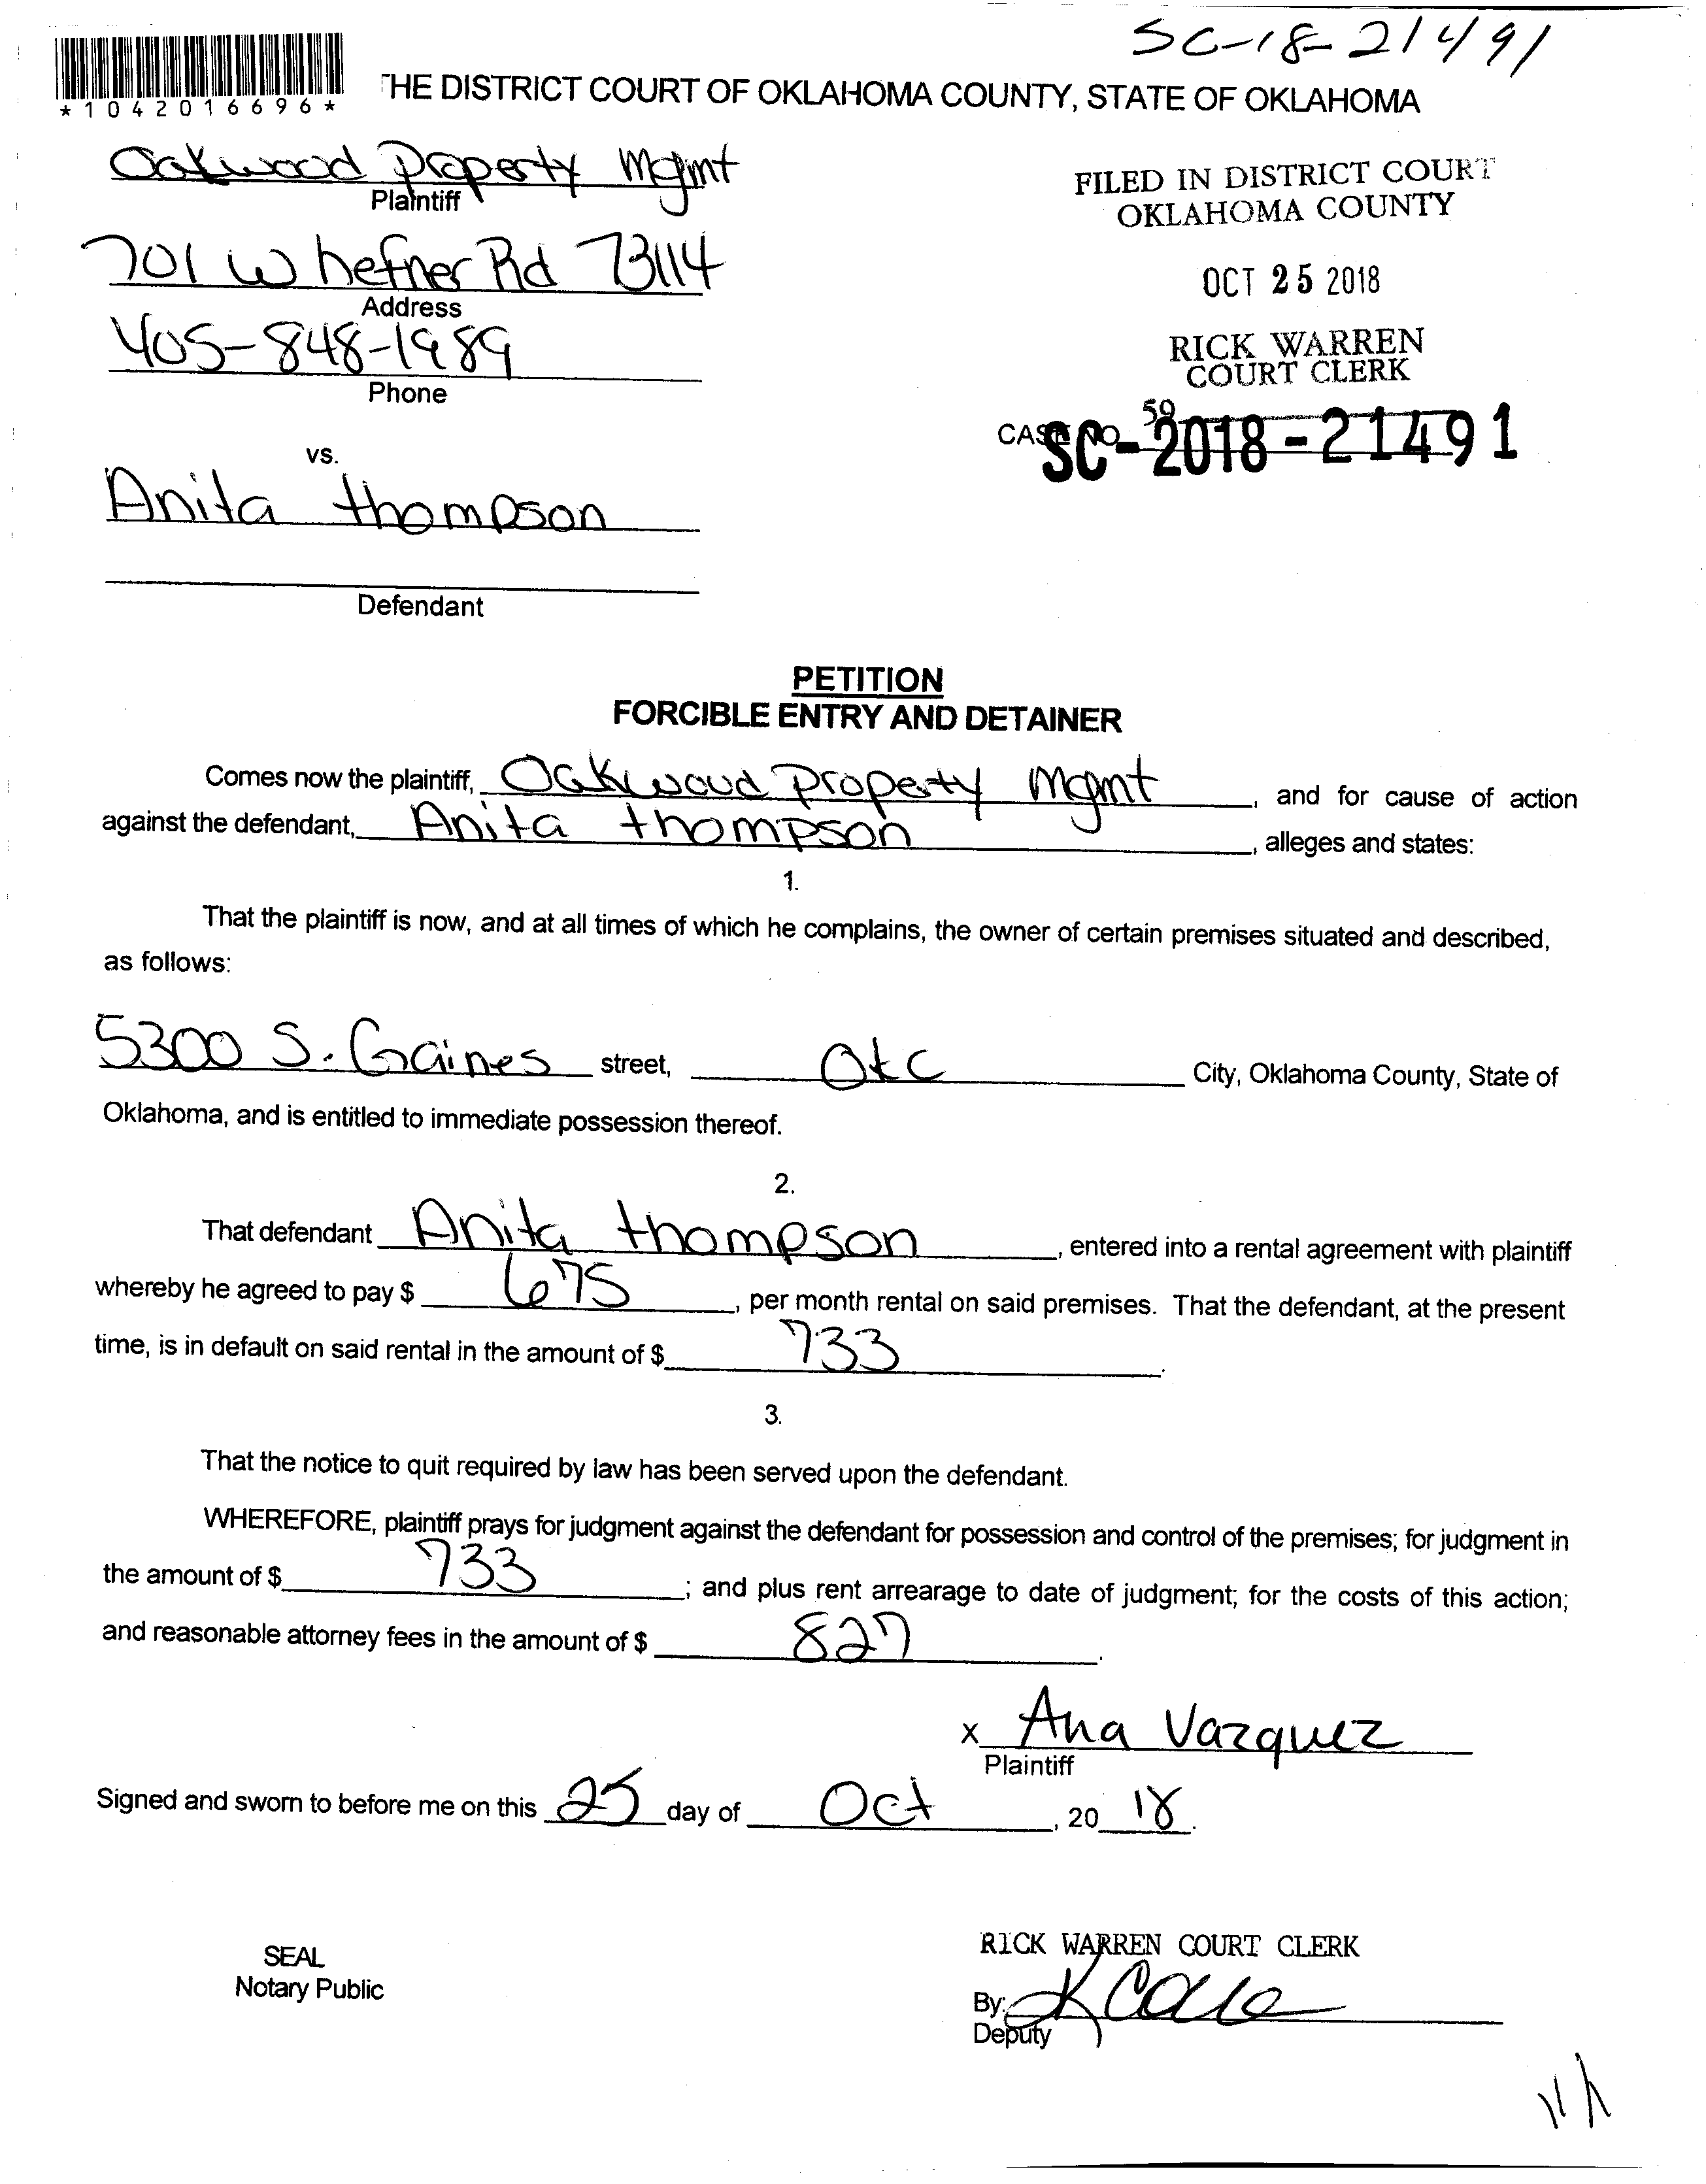 SC-18-21491
*1042016696*
THE DISTRICT COURT OF OKLAHOMA COUNTY, STATE OF OKLAHOMA
Oakwood Property Mgmt
Plaintiff
FILED IN DISTRICT COURT
OKLAHOMA COUNTY
701 W hefner Rd 73114
Address
OCT 25 2018
405-848-1989
Phone
RICK WARREN
COURT CLERK
59
CASE NO.
SC-2018-21491
vs.
Anita thompson
Defendant
PETITION
FORCIBLE ENTRY AND DETAINER
Comes now the plaintiff, Oakwood Property Mgmt, and for cause of action
against the defendant, Anita thompson, alleges and states:
1.
That the plaintiff is now, and at all times of which he complains, the owner of certain premises situated and described,
as follows:
5300 S. Gaines street, Okc City, Oklahoma County, State of
Oklahoma, and is entitled to immediate possession thereof.
2.
That defendant Anita thompson, entered into a rental agreement with plaintiff
whereby he agreed to pay $ 675, per month rental on said premises. That the defendant, at the present
time, is in default on said rental in the amount of $ 733.
3.
That the notice to quit required by law has been served upon the defendant.
WHEREFORE, plaintiff prays for judgment against the defendant for possession and control of the premises; for judgment in
the amount of $ 733; and plus rent arrearage to date of judgment; for the costs of this action;
and reasonable attorney fees in the amount of $ 827.
x Ana Vazquez
Plaintiff
Signed and sworn to before me on this 25 day of Oct, 20 18.
SEAL
Notary Public
RICK WARREN COURT CLERK
By:
Deputy